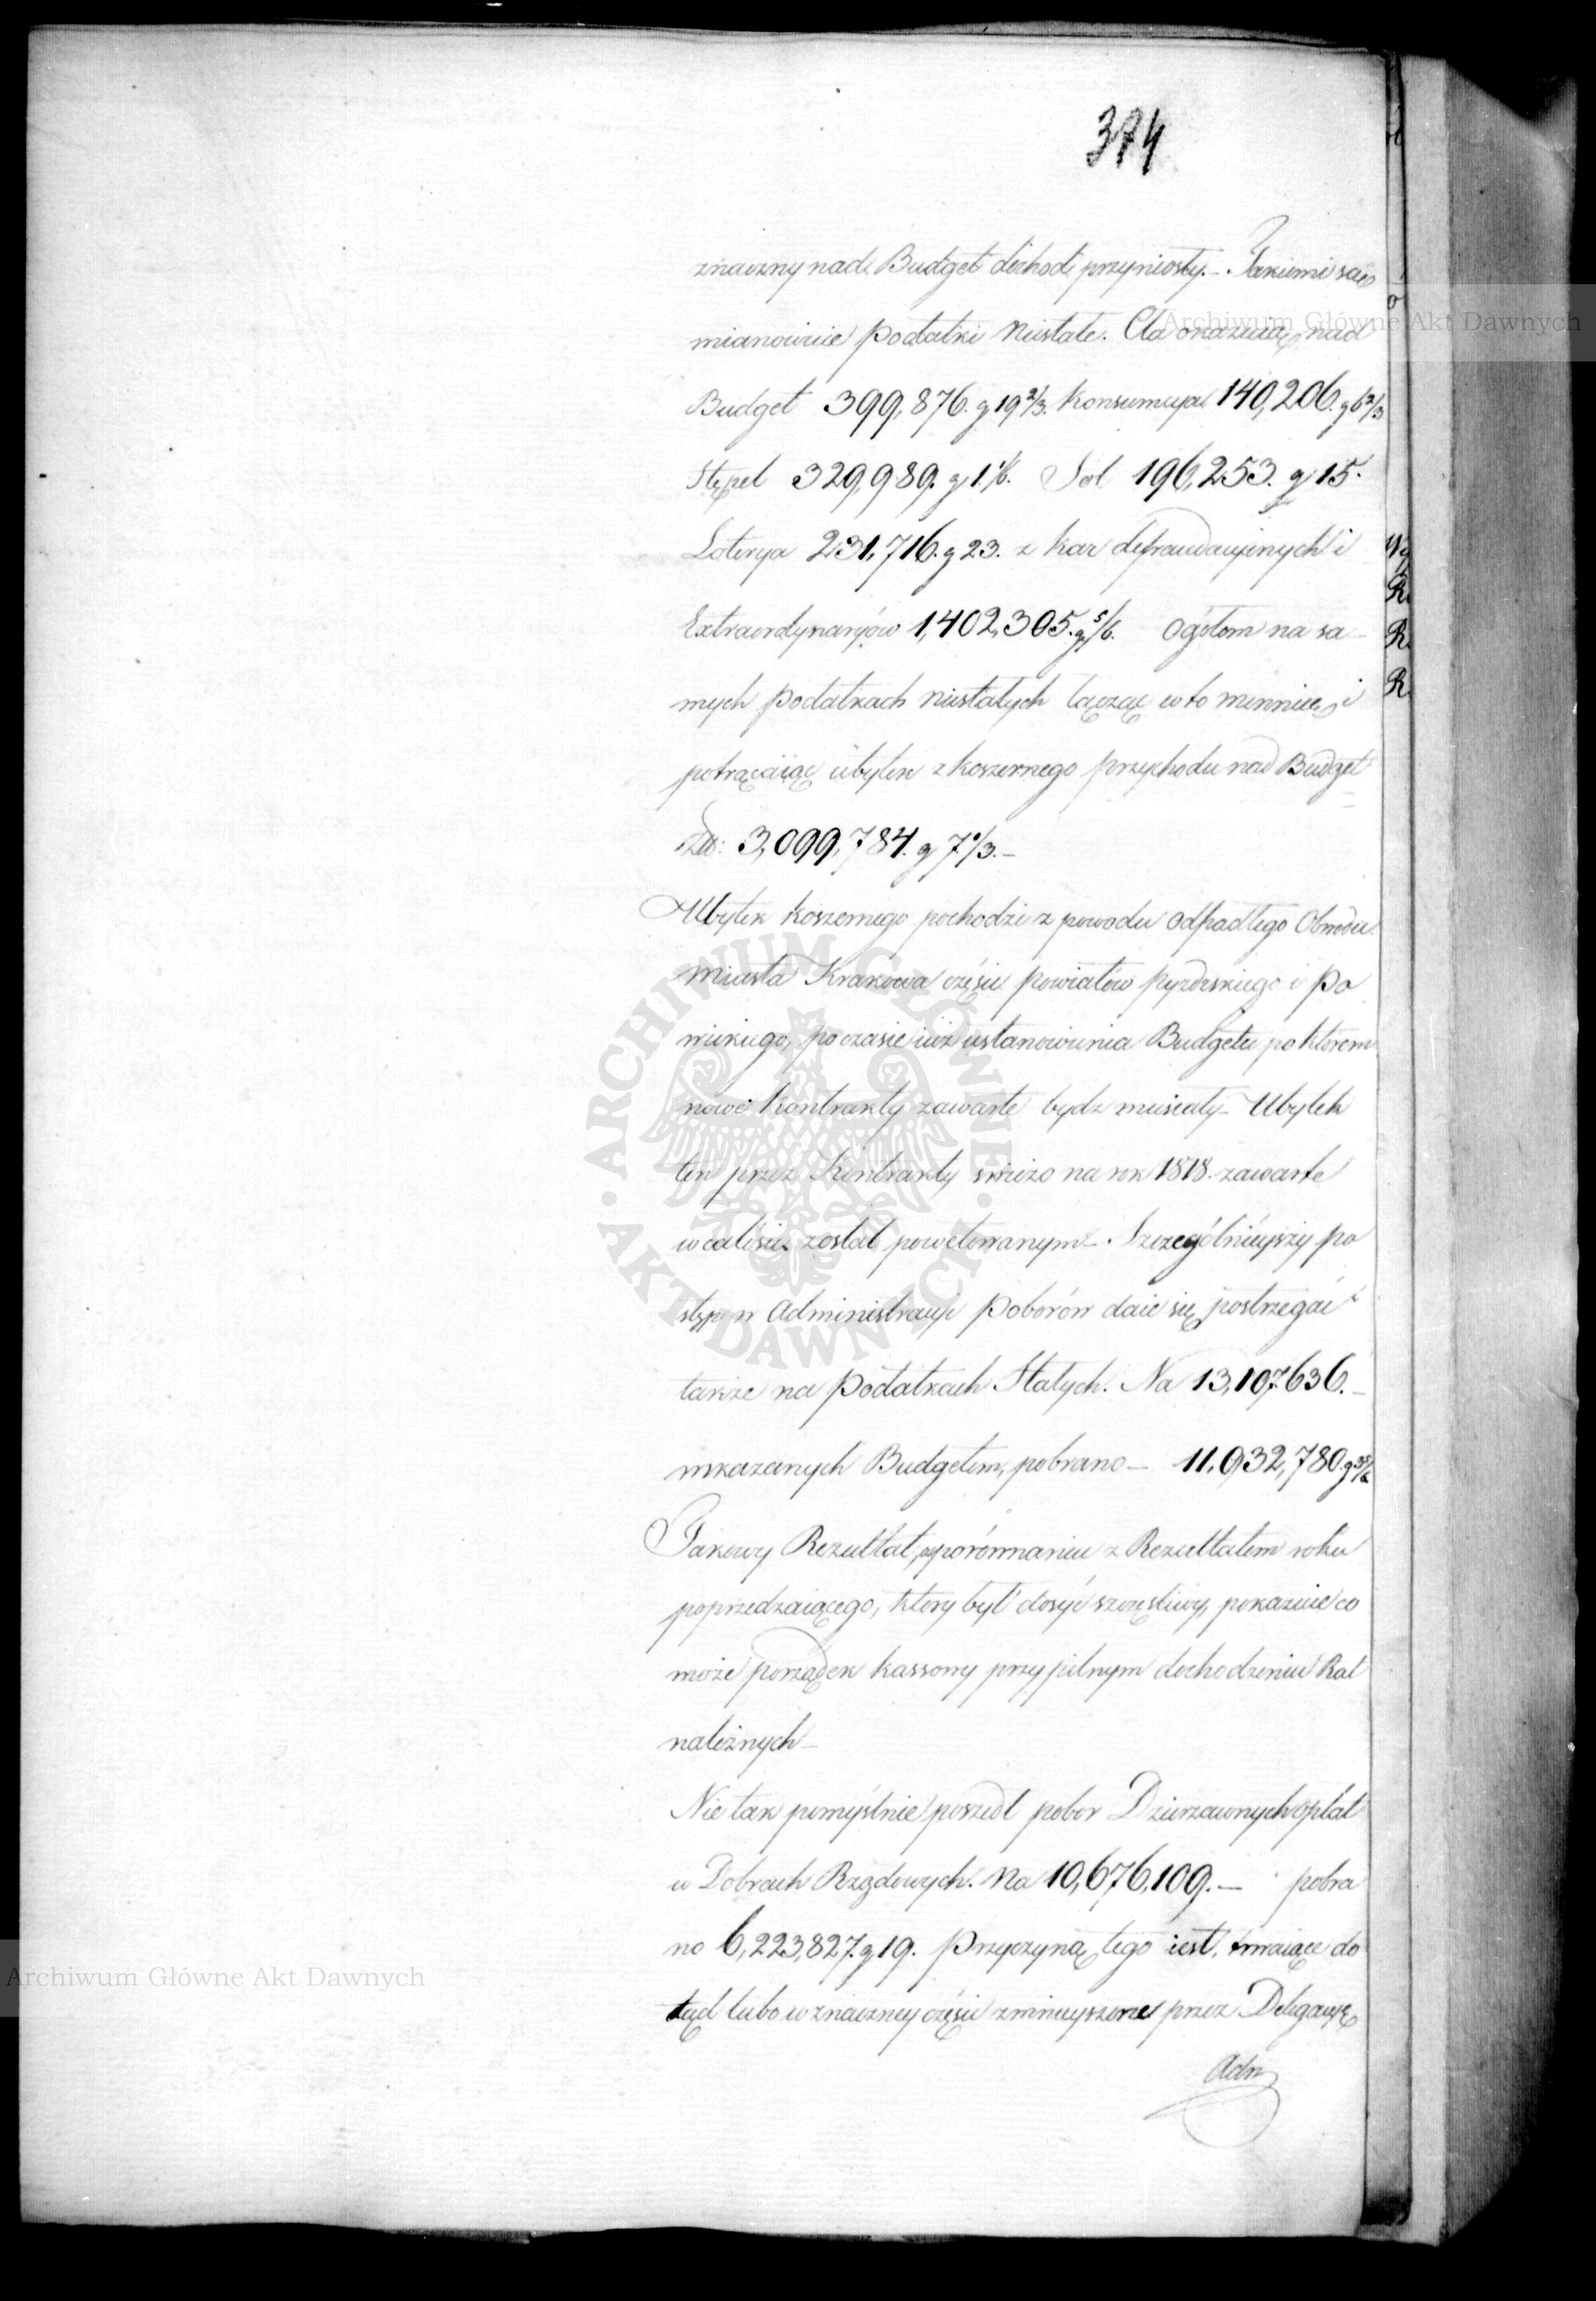 374
znaczny nad Budget dochod przyniosły. Takiemi są
mianowicie podatki Niestałe. Cła okazuią nad
Budget 399,876. g 19 2/3. Konsumcya 140,206. g 6 2/3
Stępel 329,989. g 1 1/6. Sol 196,253. g 15.
Loterya 231,716. g 23. z kar defraudacyinych i
Extraordynaryów 1,402,305. g 5/6. Ogółem na sa-
mych podatkach niestałych łącząc w to mennicę i
potrącaiąc ubytek z koszernego przychodu nad Budget
3,099,784. g 7 1/3.-
Ubytek koszernego pochodzi z powodu odpadłego Obwodu
Miasta Krakowa części powiatów pyzdrskiego i Po
wickiego, po czasie iuż ustanowienia Budgetu po ktorem
nowe Kontrakty zawarte bydz musiały- Ubytek
ten przez Kontrakty swieżo na rok 1818. zawarte
w całości został powetowanym-. Szczególnieyszy po
stęp w Administracyi Poborów daie się postrzegać
także na podatkach Stałych. Na 13,107,636.-
wskazanych Budgetem, pobrano- 11,932,780. g
Takowy Rezultat porównaniu z Rezultatem roku
poprzedzaiącego, ktory był dosyć szczęśliwy, pokazuie co
może porządek kassowy przy pilnym dochodzeniu Rat
należnych-
Nie tak pomyślnie poszedł pobor Dzierzawnych opłat
w Dobrach Rządowych. Na 10,676,109.- pobra
no 6,223,827. g 19. Przyczyną tego iest, trwaiące do
tąd lubo w znaczney części zmnieyszone przez Delegacyę
Adm
Archiwum Główne Akt Dawnych
Archiwum Główne Akt Dawnych
ARCHIWUM GŁÓWNE · AKT DAWNYCH ·